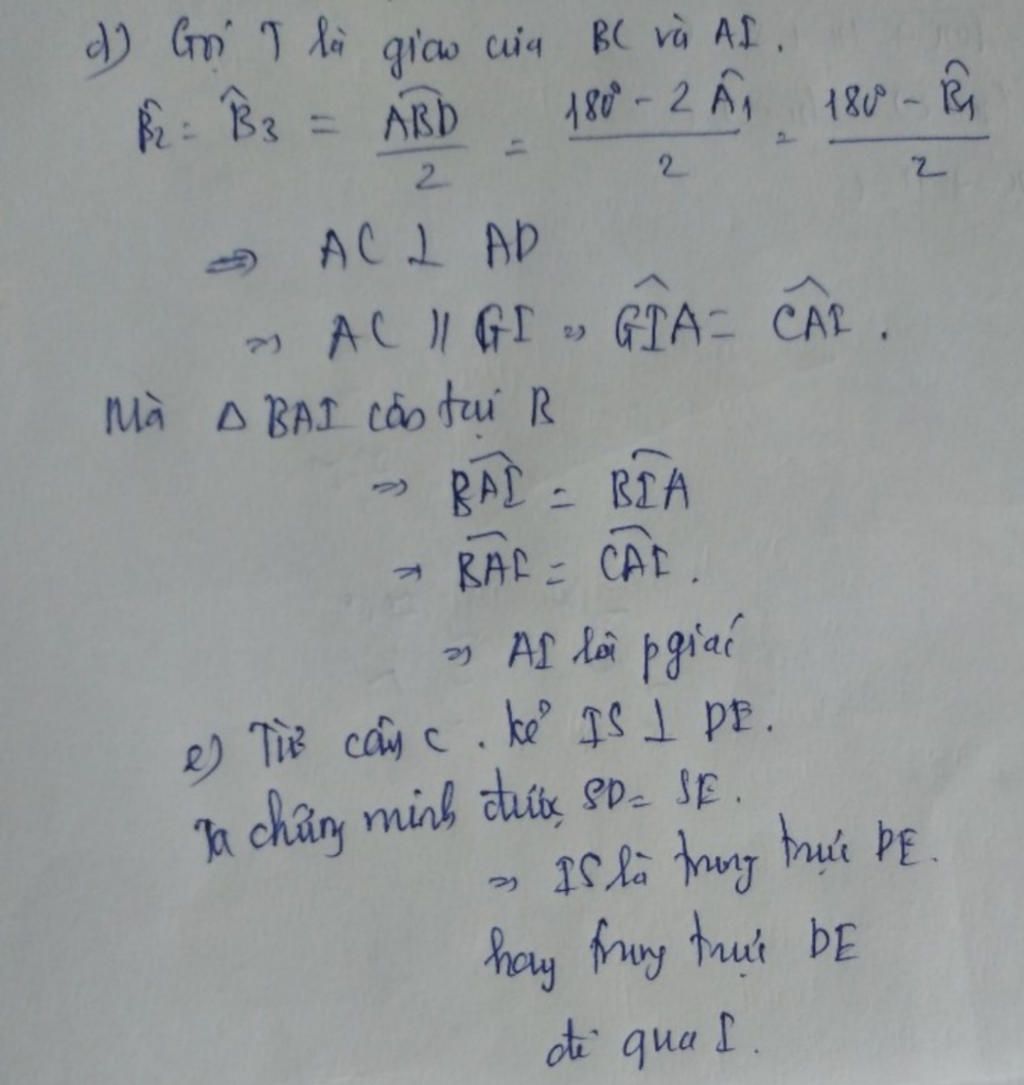 d) Gọi T là giao của BC và AI.
B̂₂ = B̂₃ = \frac{\widehat{ABD}}{2} = \frac{180° - 2Â₁}{2} = \frac{180° - B̂₁}{2}
⇒ AC ⊥ AD
⇒ AC // GI ⇒ \widehat{GIA} = \widehat{CAI}.
Mà △BAI cân tại B
⇒ \widehat{BAI} = \widehat{BIA}
⇒ \widehat{BAI} = \widehat{CAI}.
⇒ AI là pgiác
e) Từ câu c. kẻ IS ⊥ DE.
Ta chứng minh được SD = SE.
⇒ IS là trung trực DE.
hay trung trực DE
đi qua I.